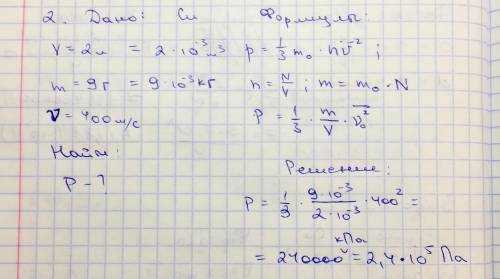 2. Дано: Си Формулы:
V = 2л = 2·10⁻³м³ p = 1/3 m₀ · n v̄² ;
m = 9г = 9·10⁻³кг n = N/V ; m = m₀ · N
v = 400 м/с P = 1/3 · m/V · v₀²
Найти:
P - ?
Решение:
P = 1/3 · 9·10⁻³/2·10⁻³ · 400² =
= 240000 кПа = 2,4·10⁵ Па